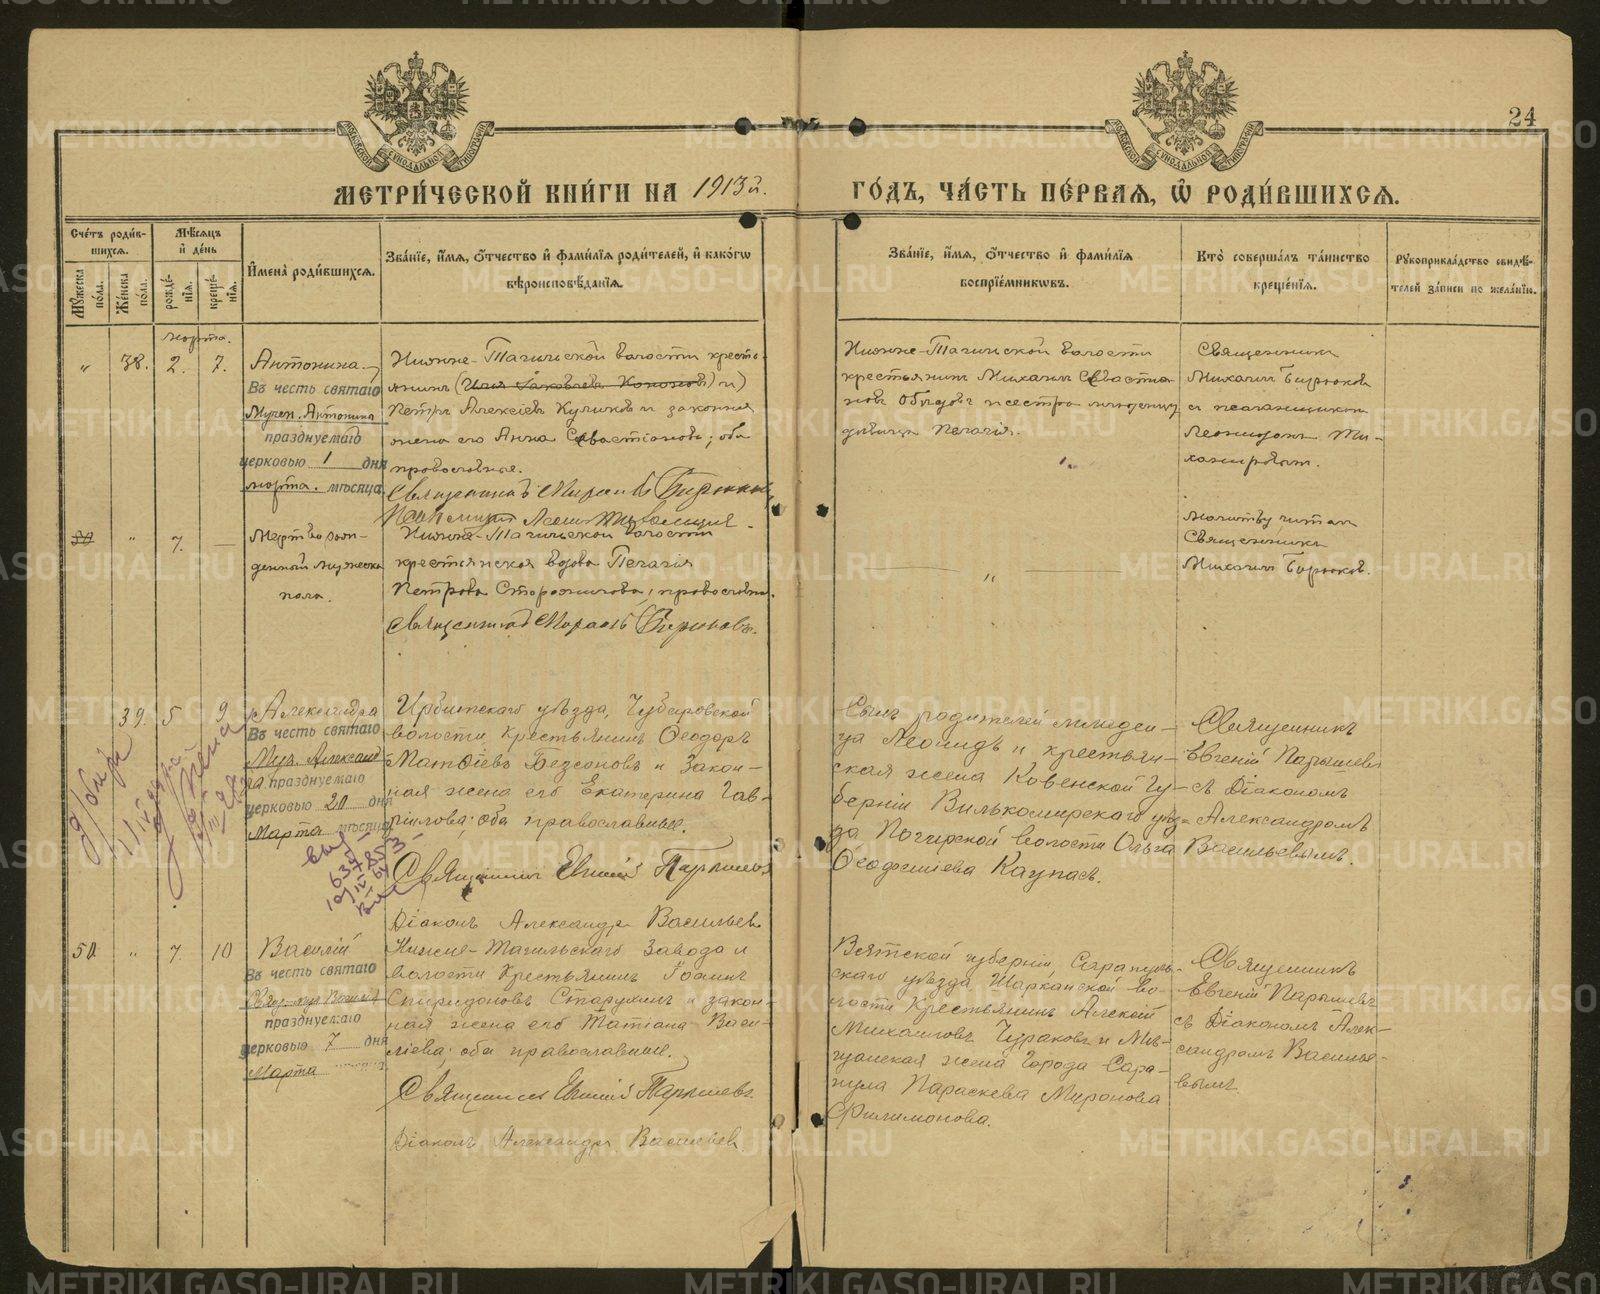 24
МЕТРИ́ЧЕСКОЙ КНИ́ГИ НА 1913 й.
ГО́ДЪ, ЧА́СТЬ ПЕ́РВАЯ, Ѡ҆ РОДИ́ВШИХСѦ.
Сче́тъ роди́в-
шихсѧ.
Мꙋ́жеска по́ла.
Же́нска по́ла.
Мѣ́сѧцъ
и҆ де́нь
рожде́-
нїѧ.
креще́-
нїѧ.
И҆мена̀ роди́вшихсѧ.
Зва́нїе, и҆́мѧ, ѻ҆́тчество и҆ фами́лїѧ роди́телей, и҆ како́гѡ
вѣроисповѣ́данїѧ.
Зва́нїе, и҆́мѧ, ѻ҆́тчество и҆ фами́лїѧ
воспрїе́мникѡвъ.
Кто̀ соверша́лъ та́инство
креще́нїѧ.
Рꙋкоприкла́дство свидѣ́-
телей за́писи по жела́нїю.
марта.
„ 38. 2. 7. Антонина
Въ честь святаго
Мучен. Антонина
празднуемаго
церковью 1 дня
марта. мѣсяца
Нижне-Тагильской волости кресть-
янин (Илья Яковлевъ Кононов) и)
Петръ Алексѣев Куликов и законная
жена его Анна Севастіанова; оба
православные.
Священникъ Михаилъ Бирюков
Нижне-Тагильской волости
крестьянин Михаил Севастиа-
нов Обидов и сестра младенца
девица Пелагія.
Священник
Михаил Бирюков
с псаломщиком
Леонидом Ти-
хомировым.
50 „ 7. —
Мертворож-
денный мужеска
пола.
Нижне-Тагильской волости
крестьянская вдова Пелагія
Петрова Сторожилова, православна.
Священникъ Михаилъ Бирюковъ.
„
Молитву читал
Священник
Михаил Бирюков.
39. 5 9 Александра
Въ честь святаго
Муч. Александ
ра празднуемаго
церковью 20 дня
Марта мѣсяца
Ирбитскаго уѣзда, Чубаровской
волости Крестьянинъ Ѳеодоръ
Матѳіевъ Безсоновъ и Закон-
ная жена его Екатерина Гав-
ріилова; оба православные.
Священникъ Евгеній Парышевъ
Діаконъ Александръ Васильевъ
Сынъ родителей младен-
ца Леонидъ и крестьян-
ская жена Ковенской Гу-
берніи Вилькомирскаго уѣз-
да Погирской волости Ольга
Ѳеофилиева Каупасъ.
Священникъ
Евгеній Парышевъ
съ Діакономъ
Александромъ
Васильевымъ.
50 „ 7. 10 Василій
Въ честь святаго
Свящ-муч Василія
празднуемаго
церковью 7 дня
Марта
Нижне-Тагильскаго Завода и
волости Крестьянинъ Іоаннъ
Спиридоновъ Старухинъ и закон-
ная жена его Татіана Васи-
ліева; оба православные.
Священникъ Евгеній Парышевъ
Діаконъ Александръ Васильевъ
Вятской губерніи, Сарапуль-
скаго уѣзда, Шарканской во-
лости Крестьянинъ Алексій
Михаиловъ Чураковъ и Мѣ-
щанская жена Города Сара-
пула Параскева Миронова
Филимонова.
Священникъ
Евгеній Парышевъ
съ Діакономъ Алек-
сандромъ Василье-
вымъ.
METRIKI.GASO-URAL.RU